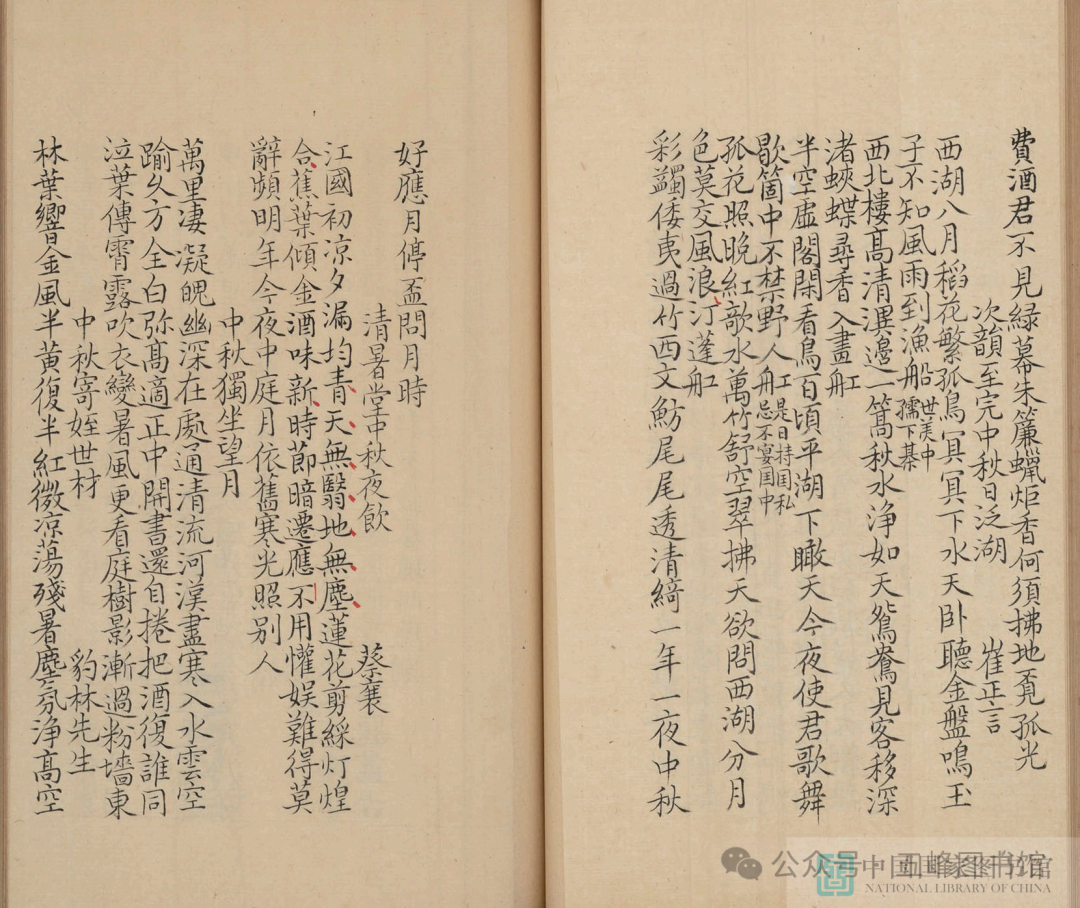 費酒君不見緑幕朱簾蠟炬香何須拂地覔孤光
次韻至完中秋日泛湖　崔正言
西湖八月稻花繁孤鳥冥冥下水天卧聽金盤鳴玉
子不知風雨到漁船世美中孺下棊
西北樓髙清淏邊一篙秋水浄如天鴛鴦見客移深
渚蛺蝶尋香入畫舡
半空虚閣閑看鳥百頃平湖下瞰天今夜使君歌舞
歇箇中不禁野人舡是日持国私忌不宴国中
孤花照晩紅歌水萬竹舒空翠拂天欲問西湖分月
色莫交風浪汀蓬舡
彩鷁倭夷過竹西文魴尾尾透清綺一年一夜中秋
好應月停盃問月時
清暑堂中秋夜飲　蔡襄
江國初凉夕漏均青天無翳地無塵蓮花剪綵灯煌
合蕉葉傾金酒味新時節暗遷應不用懽娱難得莫
辭頻明年今夜中庭月依舊寒光照别人
中秋獨坐望月
萬里凄凝魄幽深在處通清流河漢盡寒入水雲空
踰久方全白弥髙適正中開書還自捲把酒復誰同
泣葉傳霄露吹衣變暑風更看庭樹影漸過粉墻東
中秋寄姪世材　豹林先生
林葉響金風半黄復半紅微凉蕩殘暑塵氛浄髙空
公众号·五峰图书馆
中国国家图书馆
NATIONAL LIBRARY OF CHINA